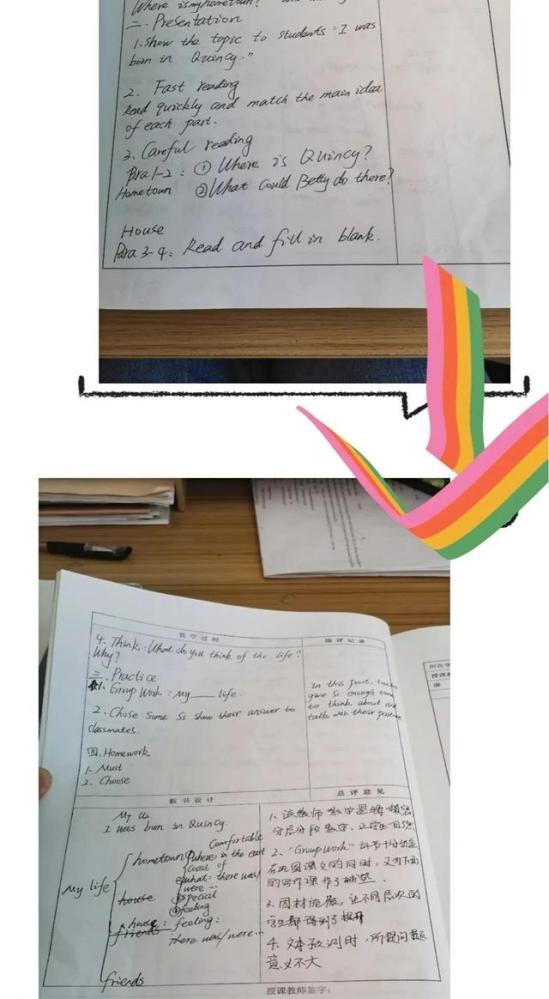 Where is my hometown?
二. Presentation
1. Show the topic to students "I was
born in Quincy."
2. Fast reading
Read quickly and match the main idea
of each part.
3. Careful reading
Para 1-2: ① Where is Quincy?
Hometown ② What could Betty do there?
House
Para 3-4: Read and fill in blank.
教学过程
4. Think: What do you think of the life?
Why?
三. Practice
1. Group Work: My ____ life.
2. Chose some Ss show their answer to
classmates.
四. Homework
1. Must
2. Choose
点评记录
In this part,
give Ss enough time
to think about and
talk with their partner
板书设计
I was born in Quincy.
My life
hometown where in the east
Comfortable
coast of
what: there was/
were ...
house special
feeling
house: feeling:
friends there was/were...
friends
总评意见
1、该教师教学思路
分层分段教学,
2、"Group Work"
在巩固课文的同时,又为下面
的写作课作了铺垫.
3. 因材施教,让不同层次的
学生都得到了提升
4. 文本教识时,所提问题
意义不大
授课教师签字: